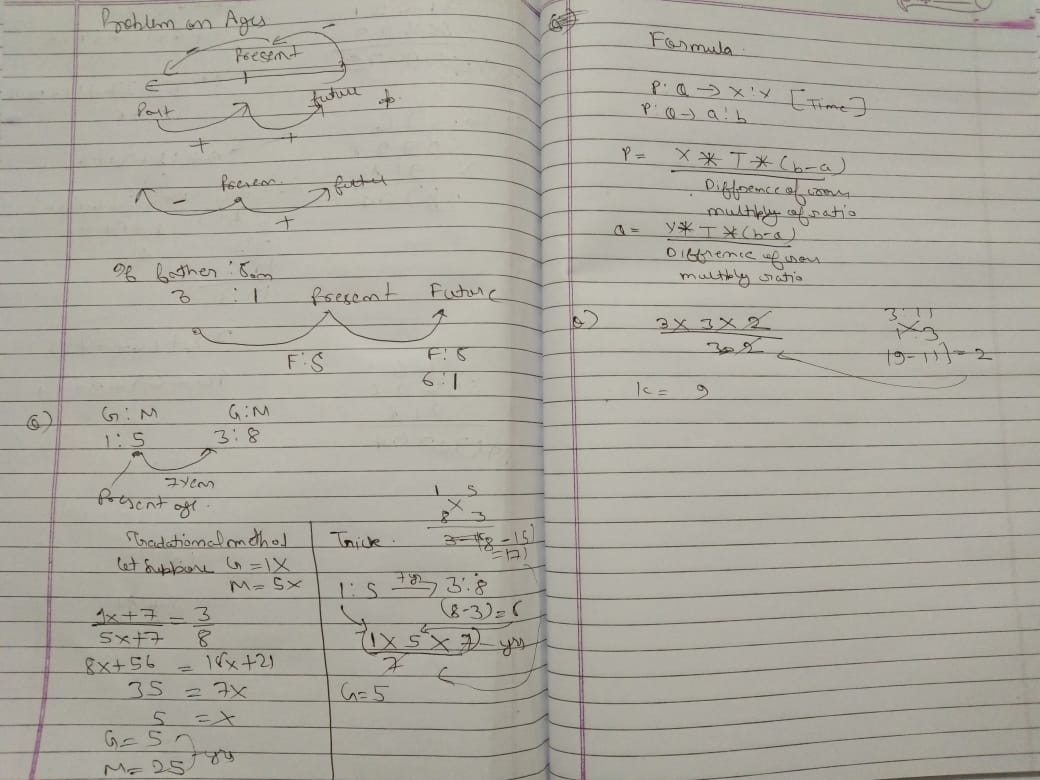 Problem on Ages
Present
Past
future
+ +
Presen future
- +
father : Son
3 : 1 Present Future
F:S F:S
6:1
Q) G:M G:M
1:5 3:8
7 year
Present age.
Tradational method
let Suppose G = 1X
M = 5X
1x+7 = 3
5x+7 8
8x+56 = 15x+21
35 = 7x
5 = x
G = 5
M = 25 yrs
Trick.
1 5
8 3
(8-15)
=(7)
1:5 7yr 3:8
(8-3)=5
(1 x 5 x 7) yrs
7
G=5
Formula.
P:Q → X:Y [Time]
P:Q → a:b
P = X * T * (b-a)
Difference of cross
multiply of ratio
Q = Y * T * (b-a)
Diffrence of cross
multiply ratio
Q) 3 x 3 x 2
2
3:11
1 3
|9-11| = 2
k = 9